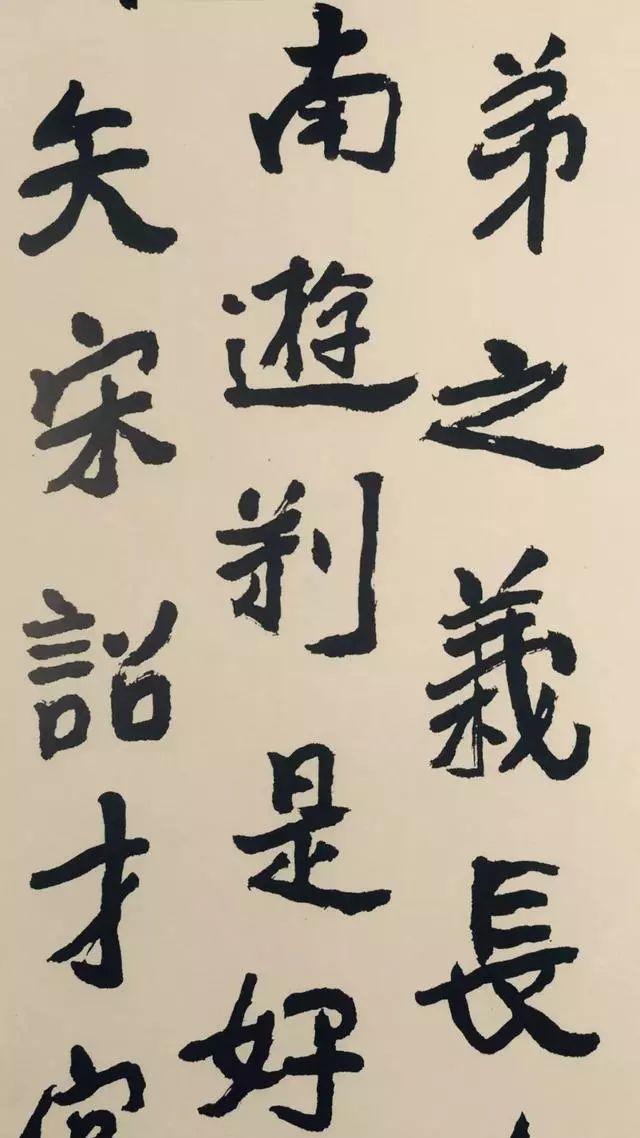 弟之義長
南遊是好
矣宋詔才